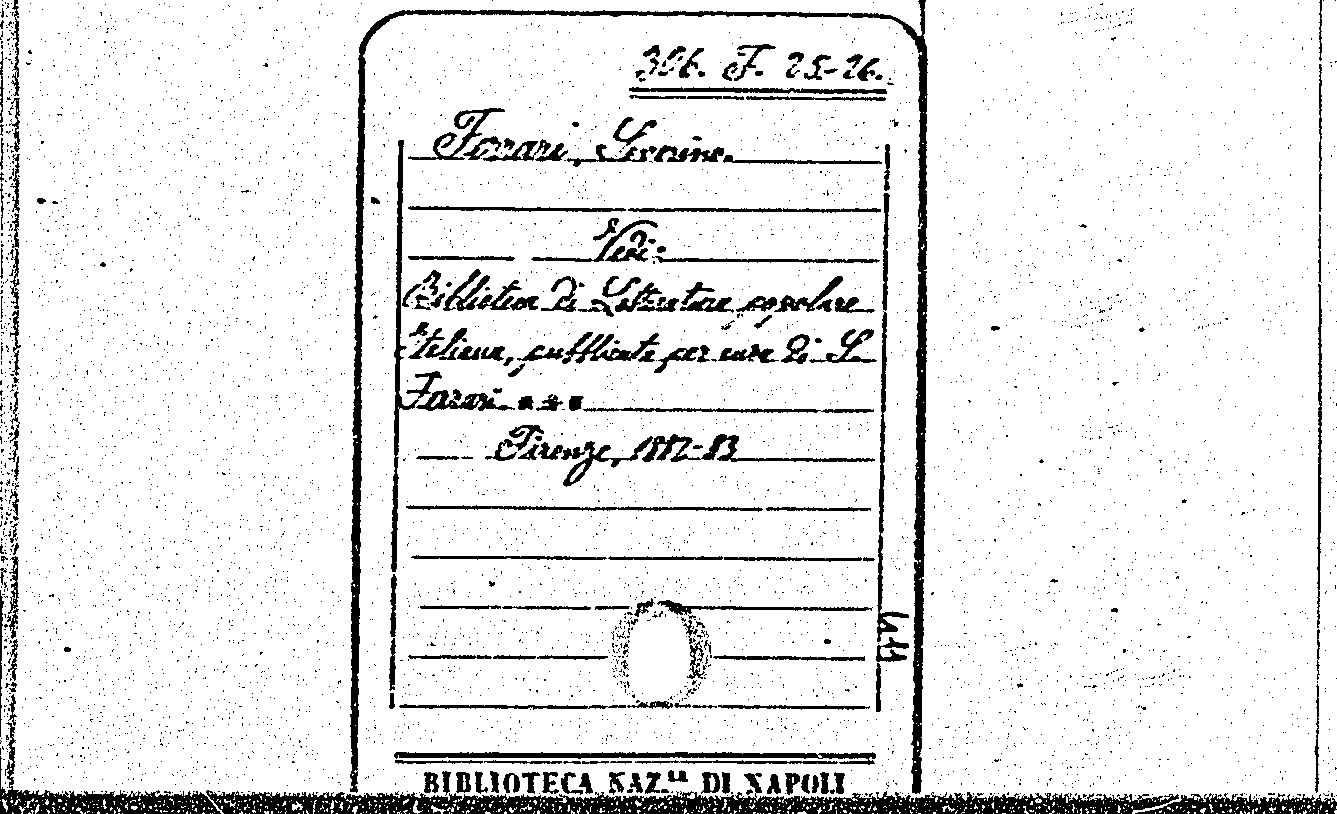 306. F. 25-26.
Ferrari, Severino.
Vedi:
Biblioteca di Letteratura popolare
italiana, pubblicata per cura di S.
Ferrari. ...
Firenze, 1882-83
BIBLIOTECA NAZ.LE DI NAPOLI